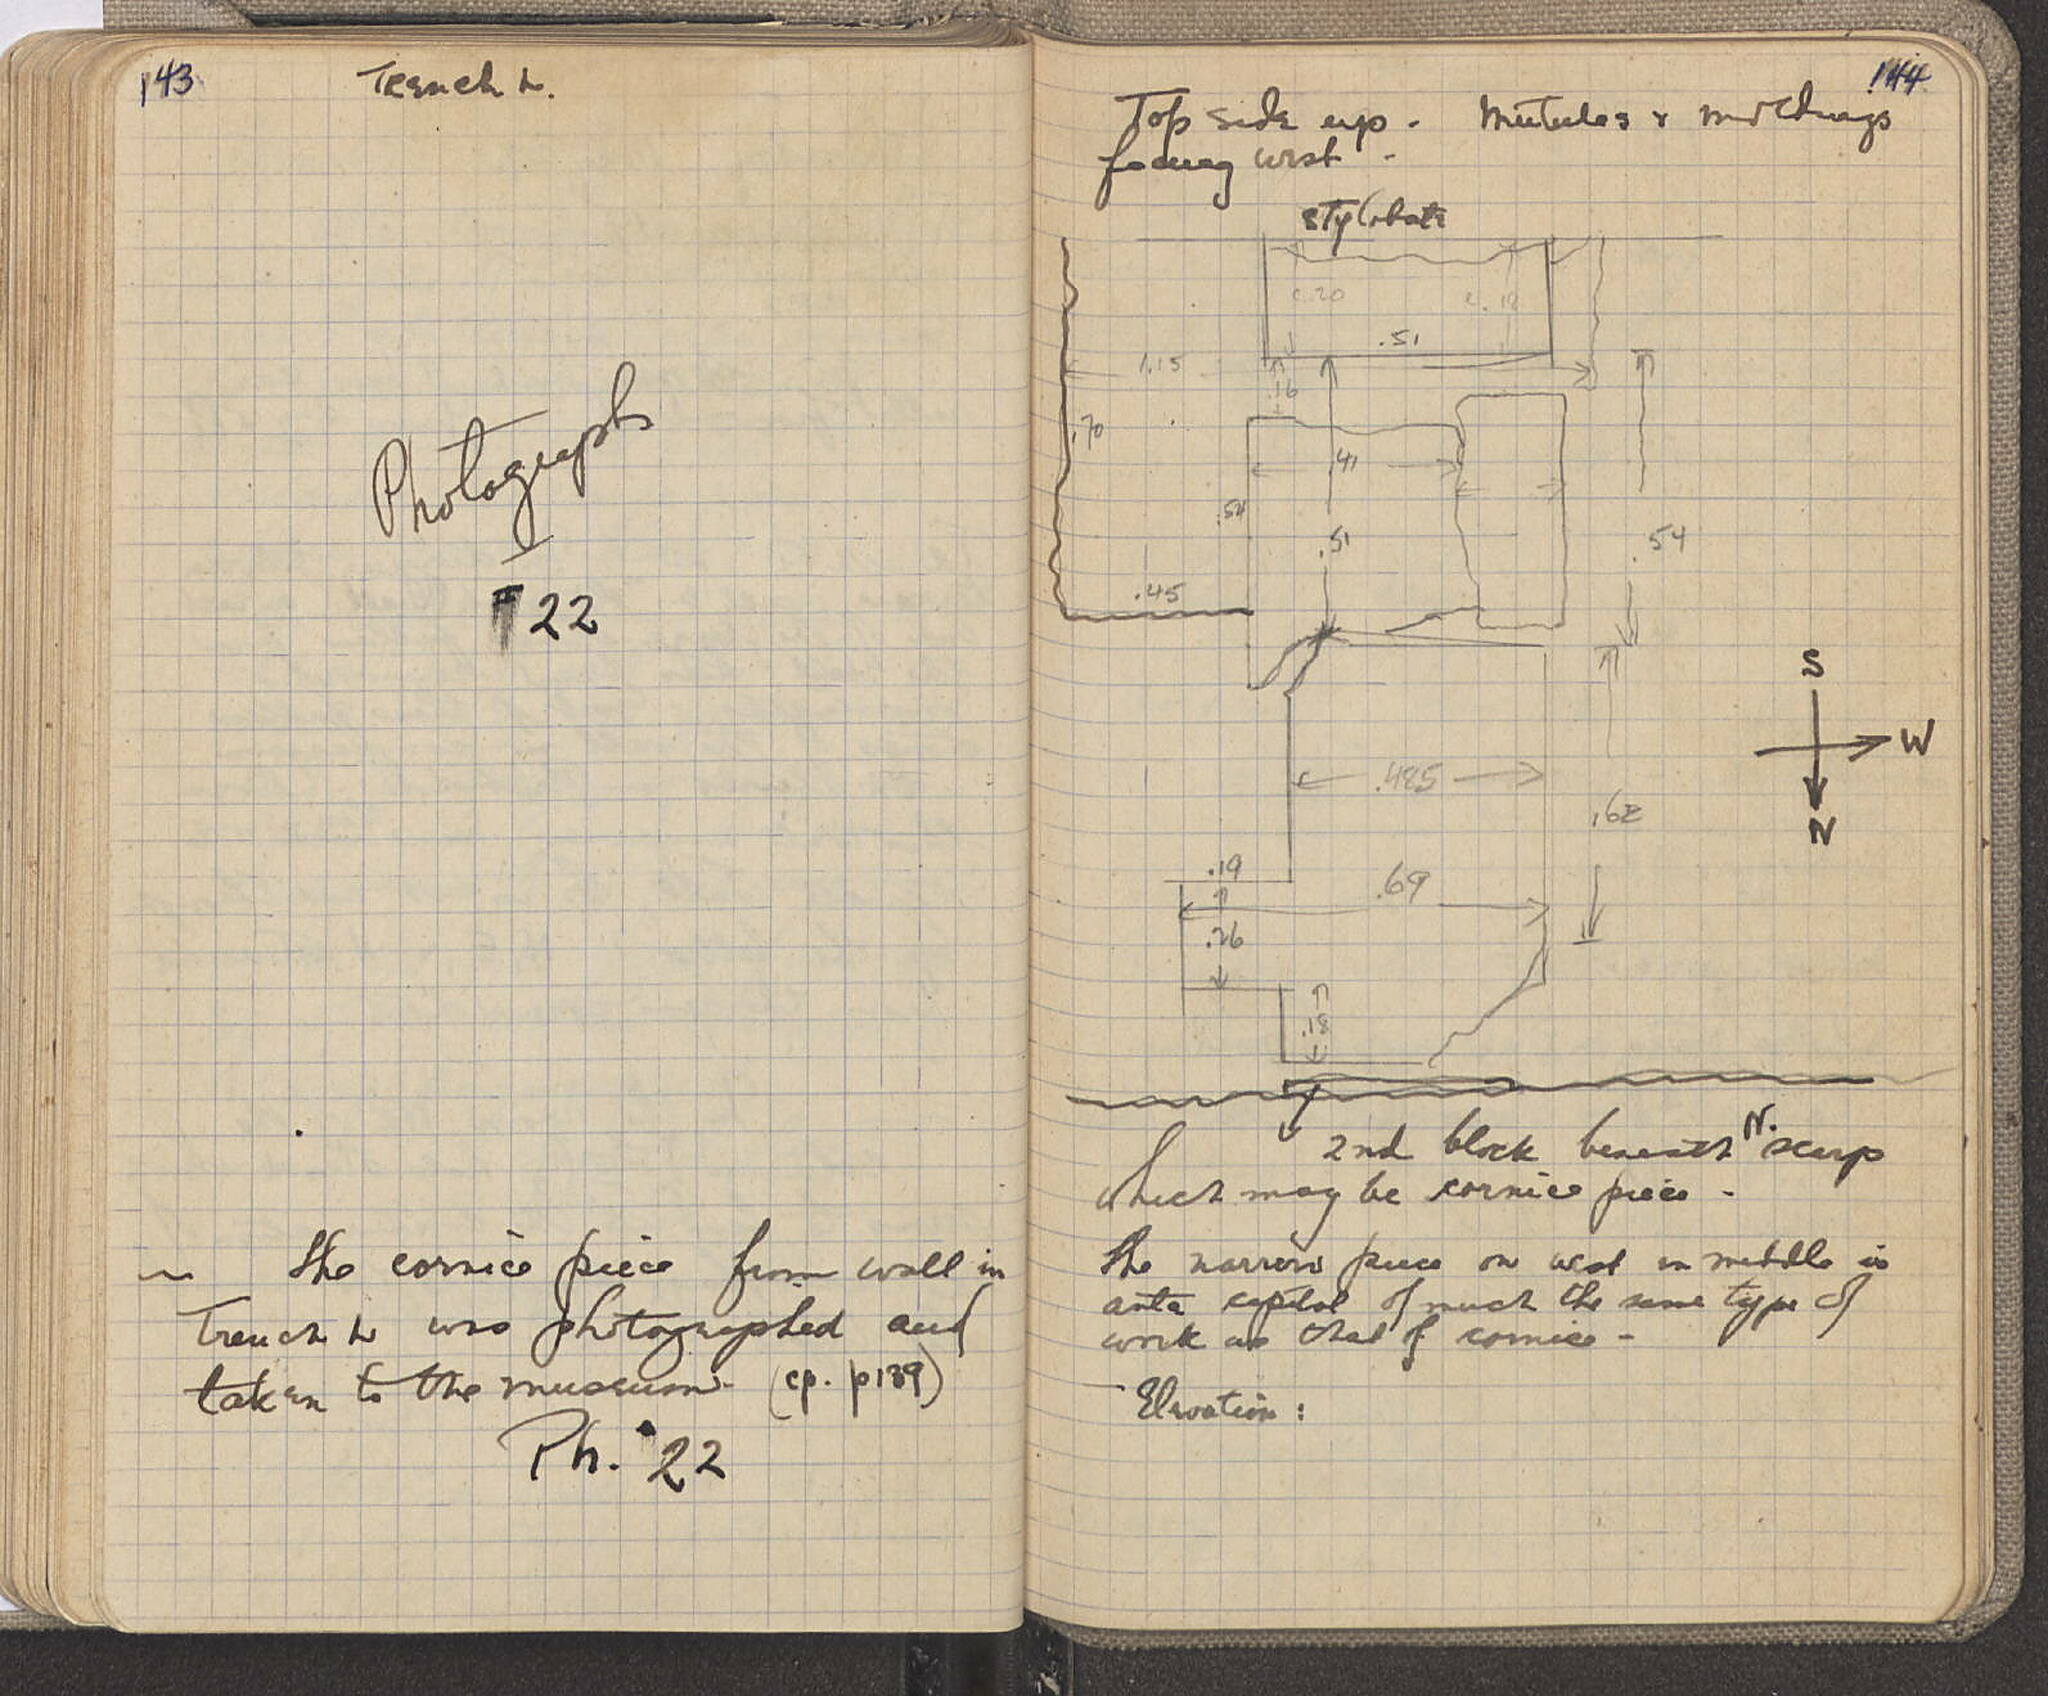 143
Trench L.
Photographs
22
~ The cornice piece from wall in
Trench L was photographed and
taken to the museum. (cp. p139)
Ph. 22
144
Top side up. Mutules & mouldings
facing west.
stylobate
c.20
c.18
.51
1.15
.16
.70
.41
.54
.51
.54
.45
S
W
N
.485
.62
.19
.69
.26
.18
2nd block beneath N. scarp
which may be cornice piece.
The narrow piece on west in middle is
anta capital of much the same type of
work as that of cornice -
Elevation: